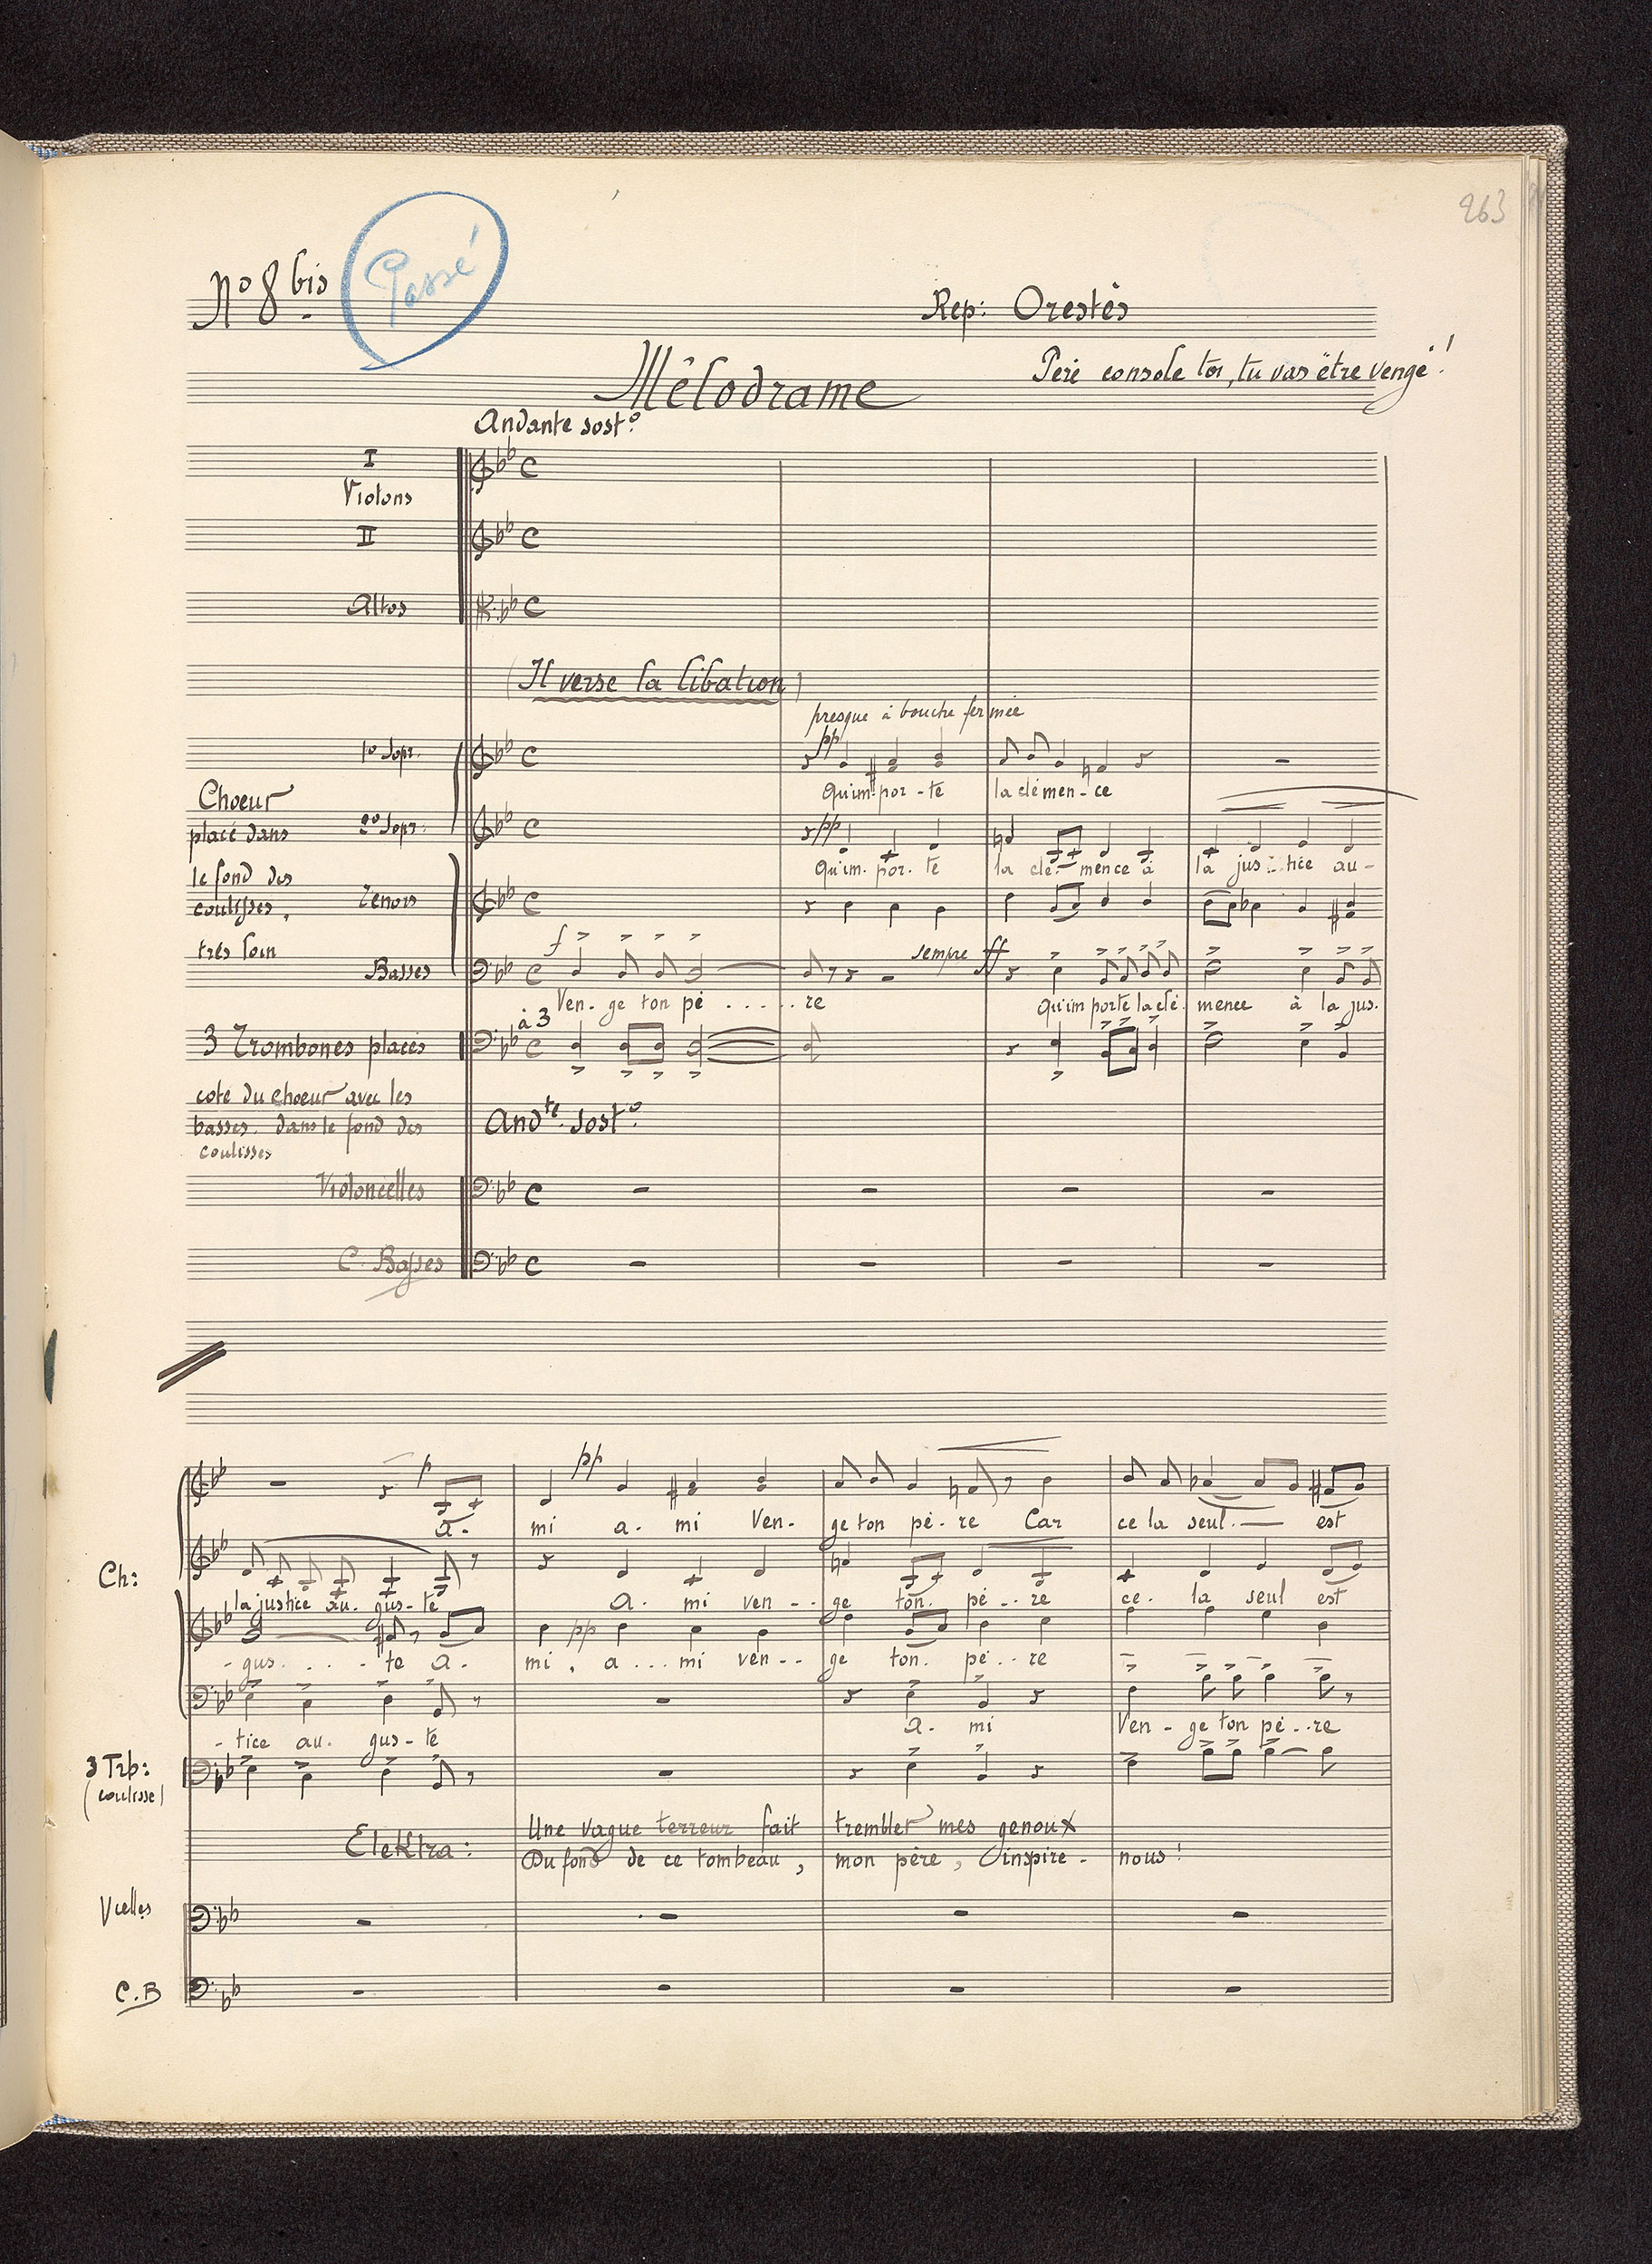 263
No 8 bis
Passé
Rep: Orestès
Père console toi, tu vas être vengé!
Mélodrame
Andante sosto
I
Violons
II
Altos
(Il verse la libation)
presque à bouche fermée
1o Sopr.
pp
Qu'im-por-te la clémen-ce
Choeur
placé dans
le fond des
coulisses,
très loin
2o Sopr.
pp
Qu'im-por-te la clé-mence à la jus-tice au-
Tenors
f
sempre ff
Basses
Ven-ge ton pè......re Qu'importe la clé mence à la jus.
à 3
3 Trombones placés
coté du choeur avec les
basses. dans le fond des
coulisses
Andte Sosto
Violoncelles
C. Basses
p
pp
a. mi a. mi Ven- ge ton pè-re Car ce la seul. est
Ch:
la justice au-gus-te a. mi ven-- ge ton. pè--re ce. la seul est
pp
-gus....te a. mi, a...mi ven-- ge ton. pè..re
-tice au. gus-te a. mi Ven-ge ton pè..re
3 Trb:
(coulisse)
Elektra:
Une vague terreur fait trembler mes genoux
Du fond de ce tombeau, mon père, inspire-nous!
Vcelles
C.B